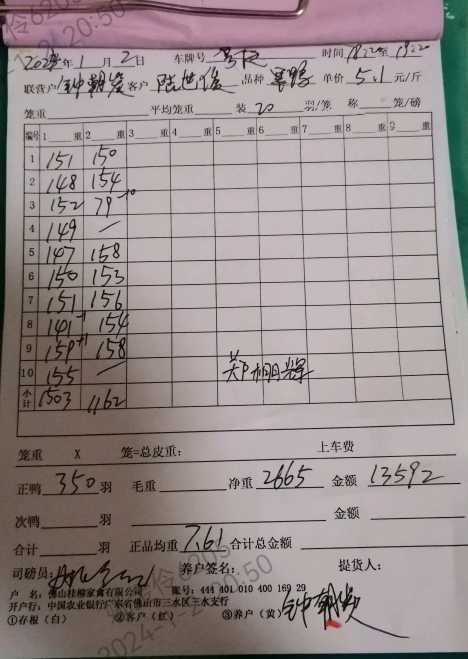 2024年1月2日 车牌号 时间18:22至19:22
联营户 钟朝发 客户 陆世俊 品种 单价5.1元/斤
笼重 平均笼重 装20羽/笼 称 笼/磅
编号 1 重 2 重 3 重 4 重 5 重 6 重 7 重 8 重 9 重
1 151 150
2 148 154
3 152 79-10
4 149 —
5 147 158
6 150 153
7 151 156
8 141-1 154
9 159+1 158
10 155 — 郑棚辉
小计 1503 1162
笼重 X 笼=总皮重: 上车费
正鸭 350 羽 毛重 净重 2665 金额 13592
次鸭 羽 金额
合计 羽 正品均重 7.61 合计总金额
司磅员: 养户签名: 提货人:
户 名: 佛山桂柳家禽有限公司 账号: 444 401 010 400 169 29
开户行: 中国农业银行广东省佛山市三水区三水支行
①存根(白) ②客户(红) ③养户(黄) 钟朝发